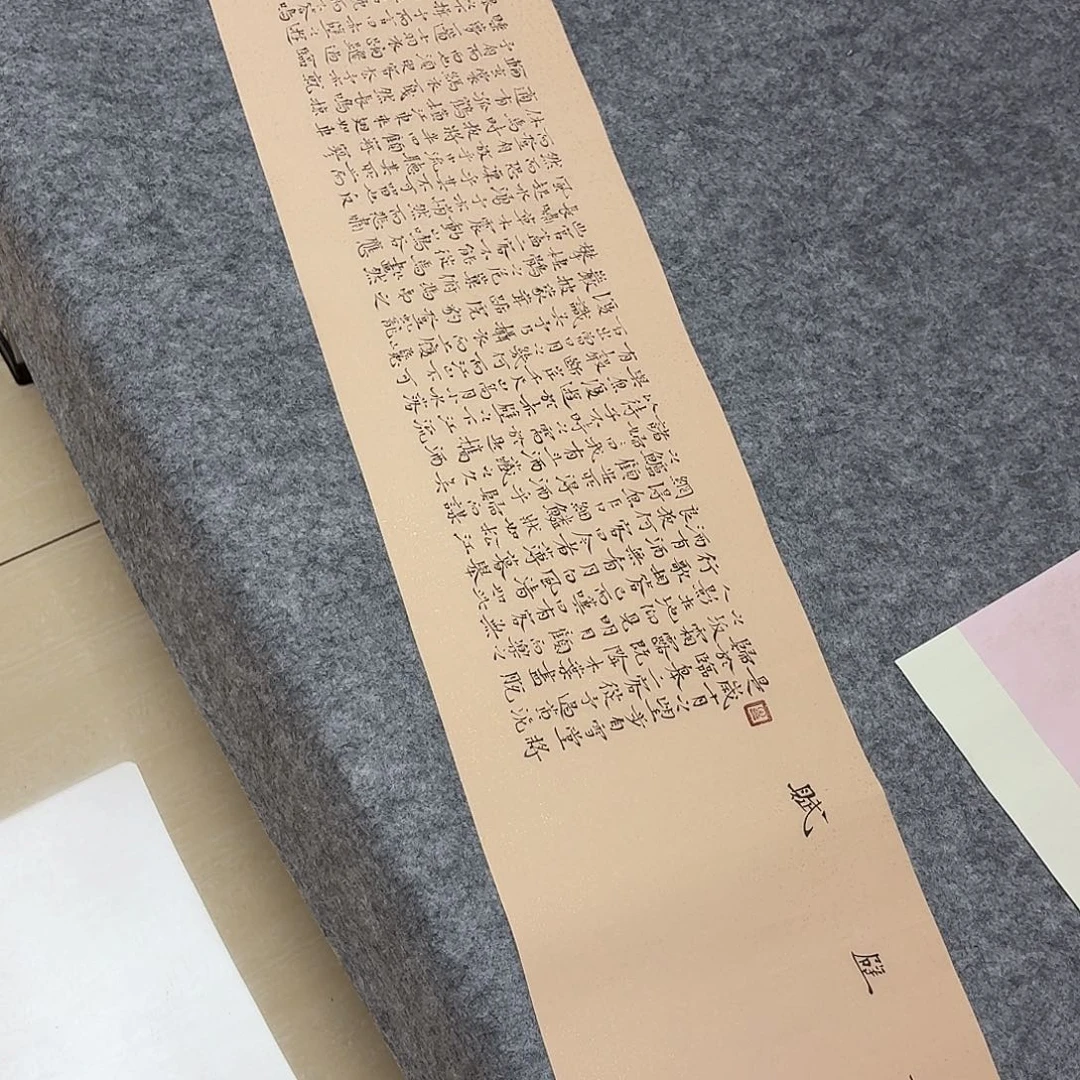 壁
賦
是歲十月之望步自雪堂將
歸於臨皋二客從予過黃泥
之坂霜露既降木葉盡脫
人影在地仰見明月顧而樂之
行歌相答已而嘆曰有客無
酒有酒無肴月白風清如此
良夜何客曰今者薄暮舉
網得魚巨口細鱗狀如松江
之鱸顧安所得酒乎歸而謀
諸婦婦曰我有斗酒藏之久矣
以待子不時之需於是攜酒
與魚復遊於赤壁之下江流
有聲斷岸千尺山高月小水落
石出曾日月之幾何而江山不可
復識矣予乃攝衣而上履
巉巖披蒙茸踞虎豹登虯龍
攀棲鶻之危巢俯馮夷之
幽宮蓋二客不能從焉劃然
長嘯草木震動山鳴谷應
風起水湧予亦悄然而悲肅
然而恐凜乎其不可留也反
而登舟放乎中流聽其所止
休焉時夜將半四顧寂寥
適有孤鶴橫江東來翅如車
輪玄裳縞衣戛然長鳴掠
予舟而西也須臾客去予亦就